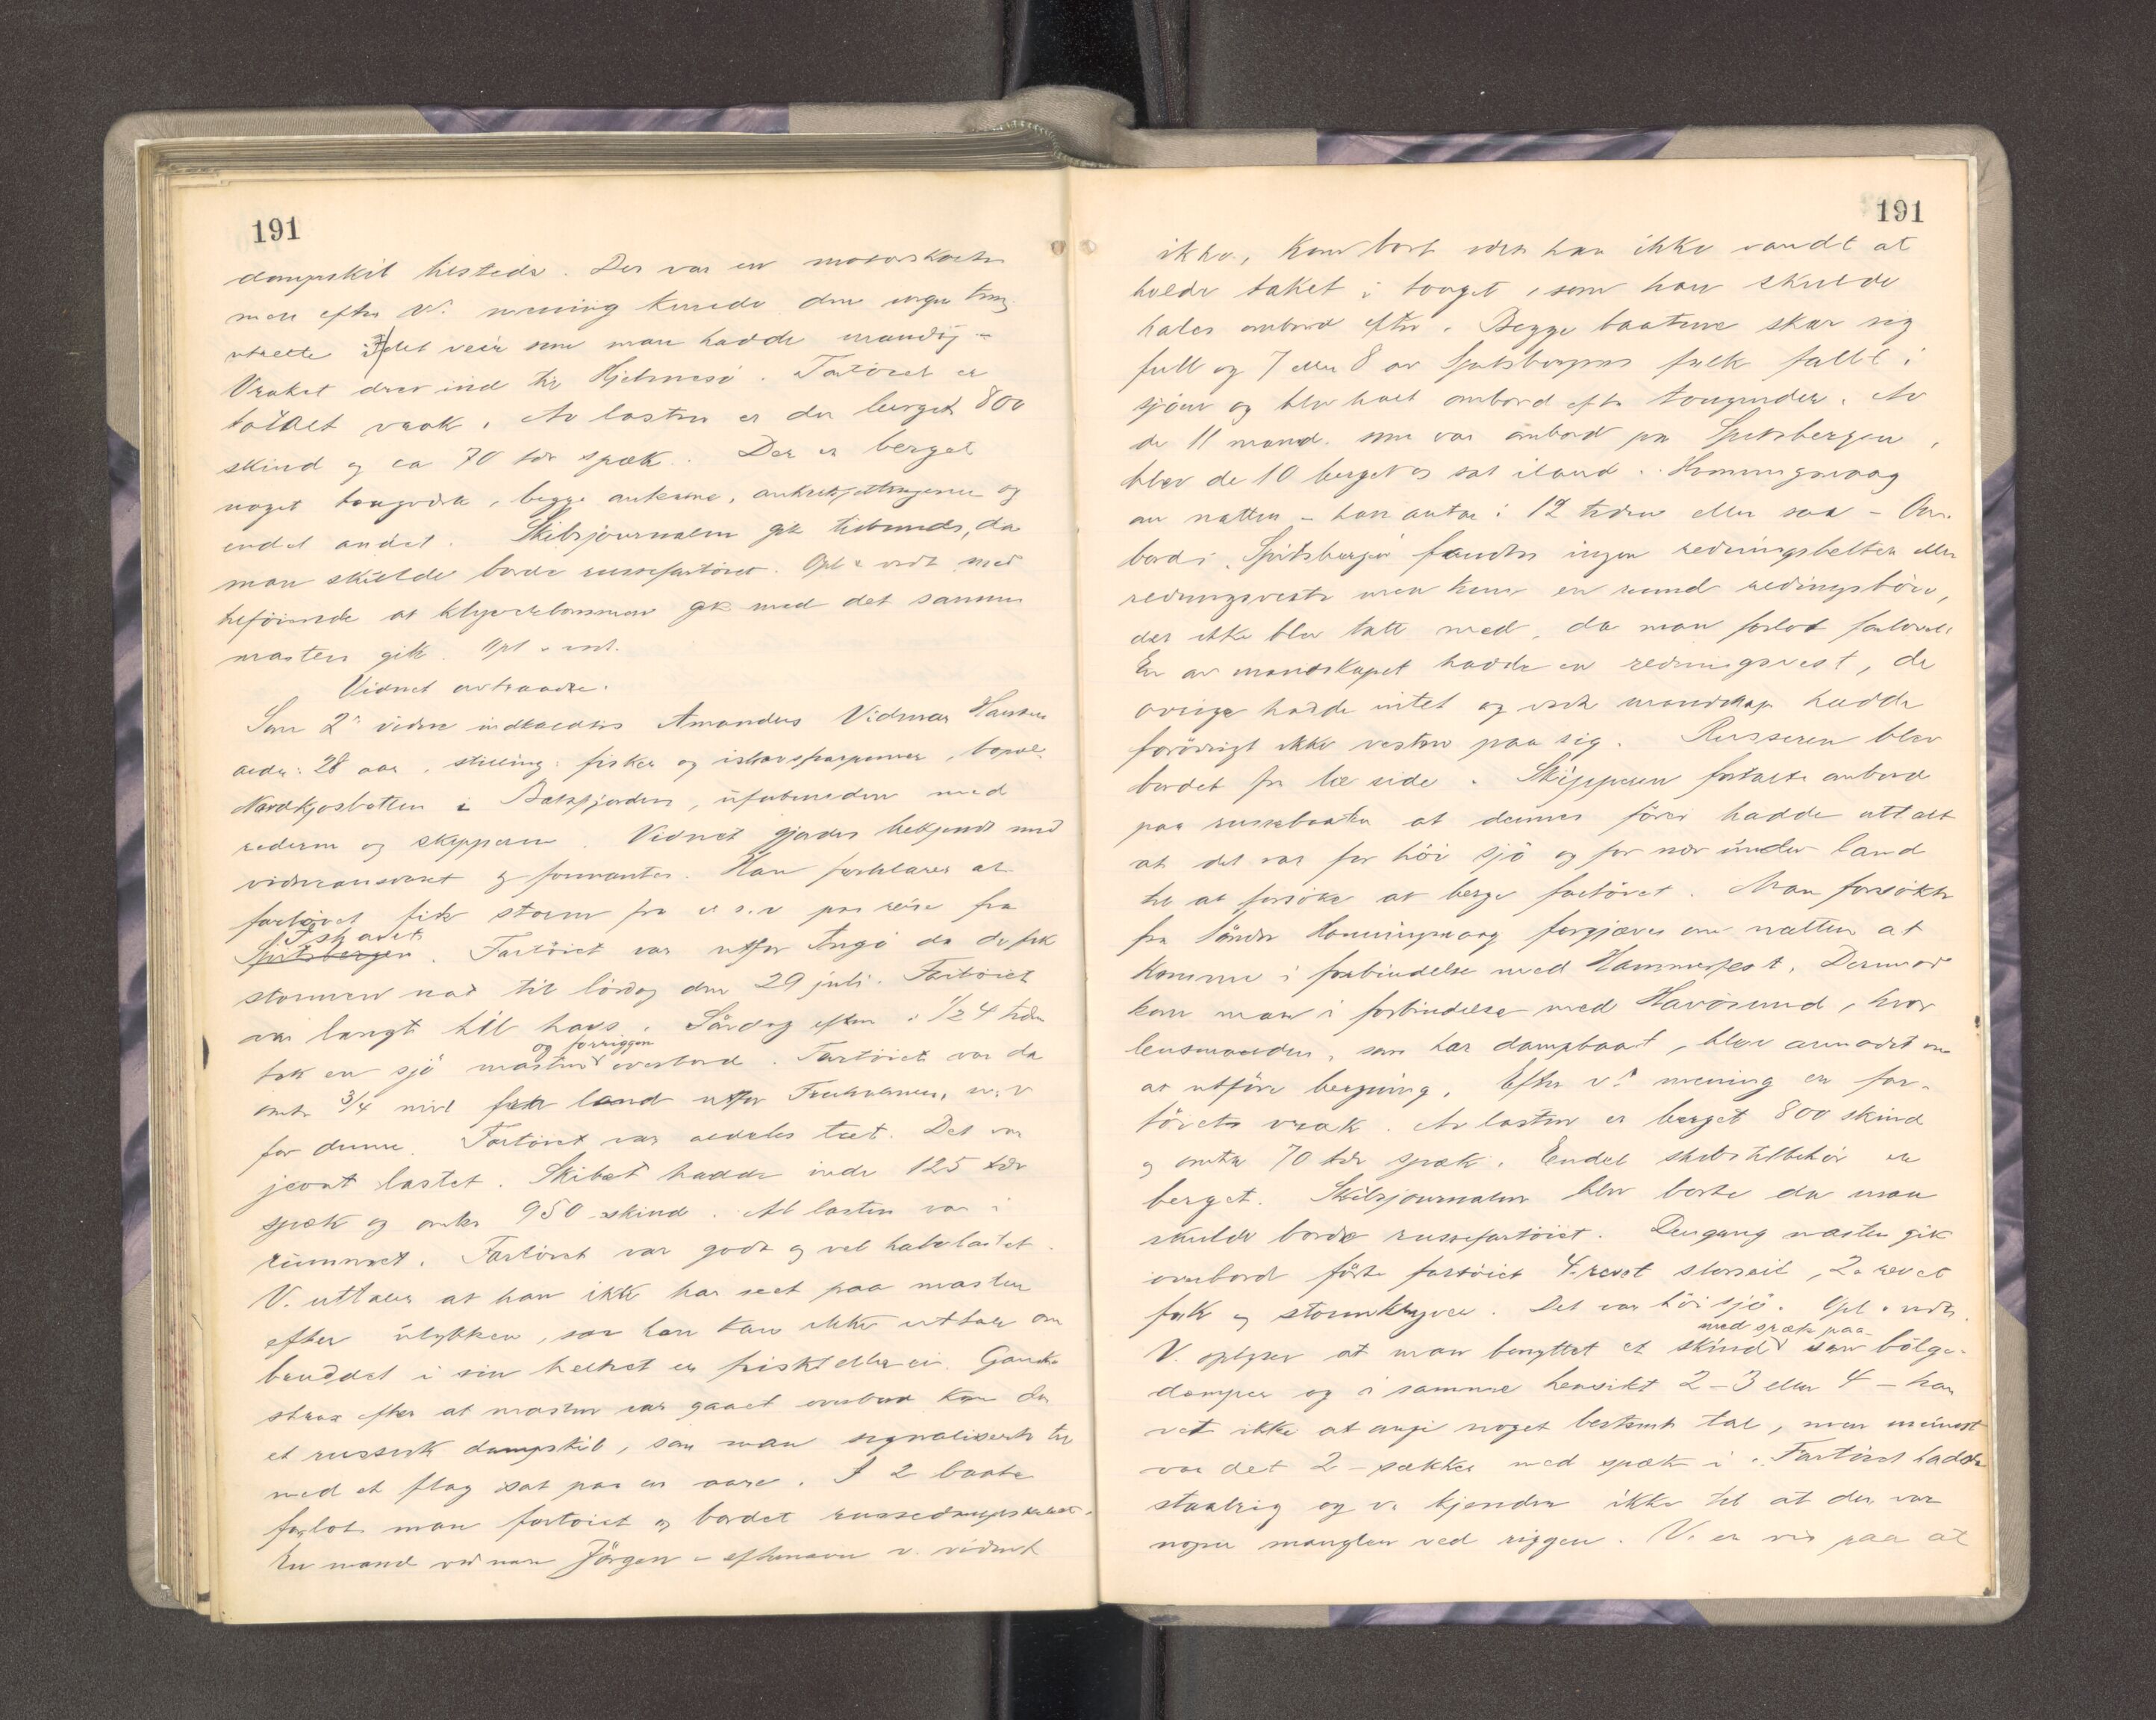 191
dampskib tilstede. Der var en motorskøite
men efter V. mening kunde den ingen ting
utrette i det veir som man hadde
Vraket drev ind til Hjelmesö. Fartöiet er
totalt vrak. Av lasten er der berget 800
skind og ca 70 tdr spæk. Der er berget
noget taugverk, begge ankerne, ankerkjettingerne og
endel andet. Skibsjournalen gik tilbunds, da
man skulde borde russefartöiet. Opl. vedt. med
tilföiende at klyverbommen gik med det samme
masten gik. Opl. vedt.
Vidnet avtraadte.
Som 2' vidne indkaldtes Amandus Vidmar Hansen
alder: 28 aar, stilling: fisker og ishavsfarer, bopæl
Nordkjosbotten i Balsfjorden, ubeslegtet med
rederne og skipperen. Vidnet gjordes bekjendt med
vidneansvaret og formantes. Han forklarer at
fartöiet fik storm fra paa reise fra
Ishavet
Spitsbergen. Fartöiet var utfor Ingö da de fik
stormen nat til lördag den 29 juli. Fartöiet
var langt til havs. Lördag efterm. i 1/2 4 tiden
og forriggen
tok en sjö masten overbord. Fartöiet var da
omtr 3/4 mil fra land utfor Fruholmen, n.v
for denne. Fartöiet var aldeles tæt. Det var
jevnt lastet. Skibet hadde inde 125 tdr
spæk og omtr 950 skind. Al lasten var i
rummet. Fartöiet var godt og vel halvlastet.
V. uttaler at han ikke har seet paa masten
efter ulykken, saa han kan ikke uttale om
bruddet i sin helhet er friskt eller ei. Ganske
strax efter at masten var gaaet overbord kom der
et russisk dampskib, som man signaliserte til
med et flag sat paa en aare. I 2 baate
forlot man fartöiet og bordet russedampskibet.
En mand ved navn Jörgen - efternavn v. vidnet
191
ikke, kom bort idet han ikke vandt at
holde taket i tauget, som han skulde
hales ombord efter. Begge baatene skar sig
full og 7 eller 8 av Spitsbergens folk faldt i
sjöen og blev halt ombord efter taugender. Av
de 11 mand som var ombord paa Spitsbergen,
blev de 10 berget og sat iland i Honningsvaag
om natten - han antar i 12 tiden eller saa - Om-
bord i Spitsbergen fandtes ingen redningsbelter eller
redningsveste men kun en rund redningsböie,
der ikke blev tatt med, da man forlot fartöiet.
En av mandskapet hadde en redningsvest, de
övrige hadde intet og mandskap hadde
forövrigt ikke vesten paa sig. Russeren blev
bordet fra læ side. Skipperen fortalte ombord
paa russebaaten at dennes förer hadde uttalt
at det var for höi sjö og for nær under land
til at forsöke at berge fartöiet. Man forsökte
fra Söndre Honningsvaag forgjæves om natten at
komme i forbindelse med Hammerfest. Dermed
kom man i forbindelse med Havösund, hvor
lensmanden, som har dampbaat, blev anmodet om
at utföre bergning. Efter v's mening er far-
töiet vrak. Av lasten er berget 800 skind
og omtr 70 tdr spæk. Endel skibstilbehör er
berget. Skibsjournalen blev borte da man
skulde borde russefartöiet. Dengang masten gik
overbord förte fartöiet 4-revet storseil, 2-revet
fok og stormklyver. Det var höi sjö. Opl. vedt.
med spæk paa
V. oplyser at man benyttet et skind som bölge-
demper og i samme hensikt 2-3 eller 4 - han
vet ikke at angi noget bestemt tal, men mindst
var det 2 - sække med spæk i. Fartöiet hadde
staalrig og v. kjender ikke til at der var
nogen mangler ved riggen. V. er vis paa at